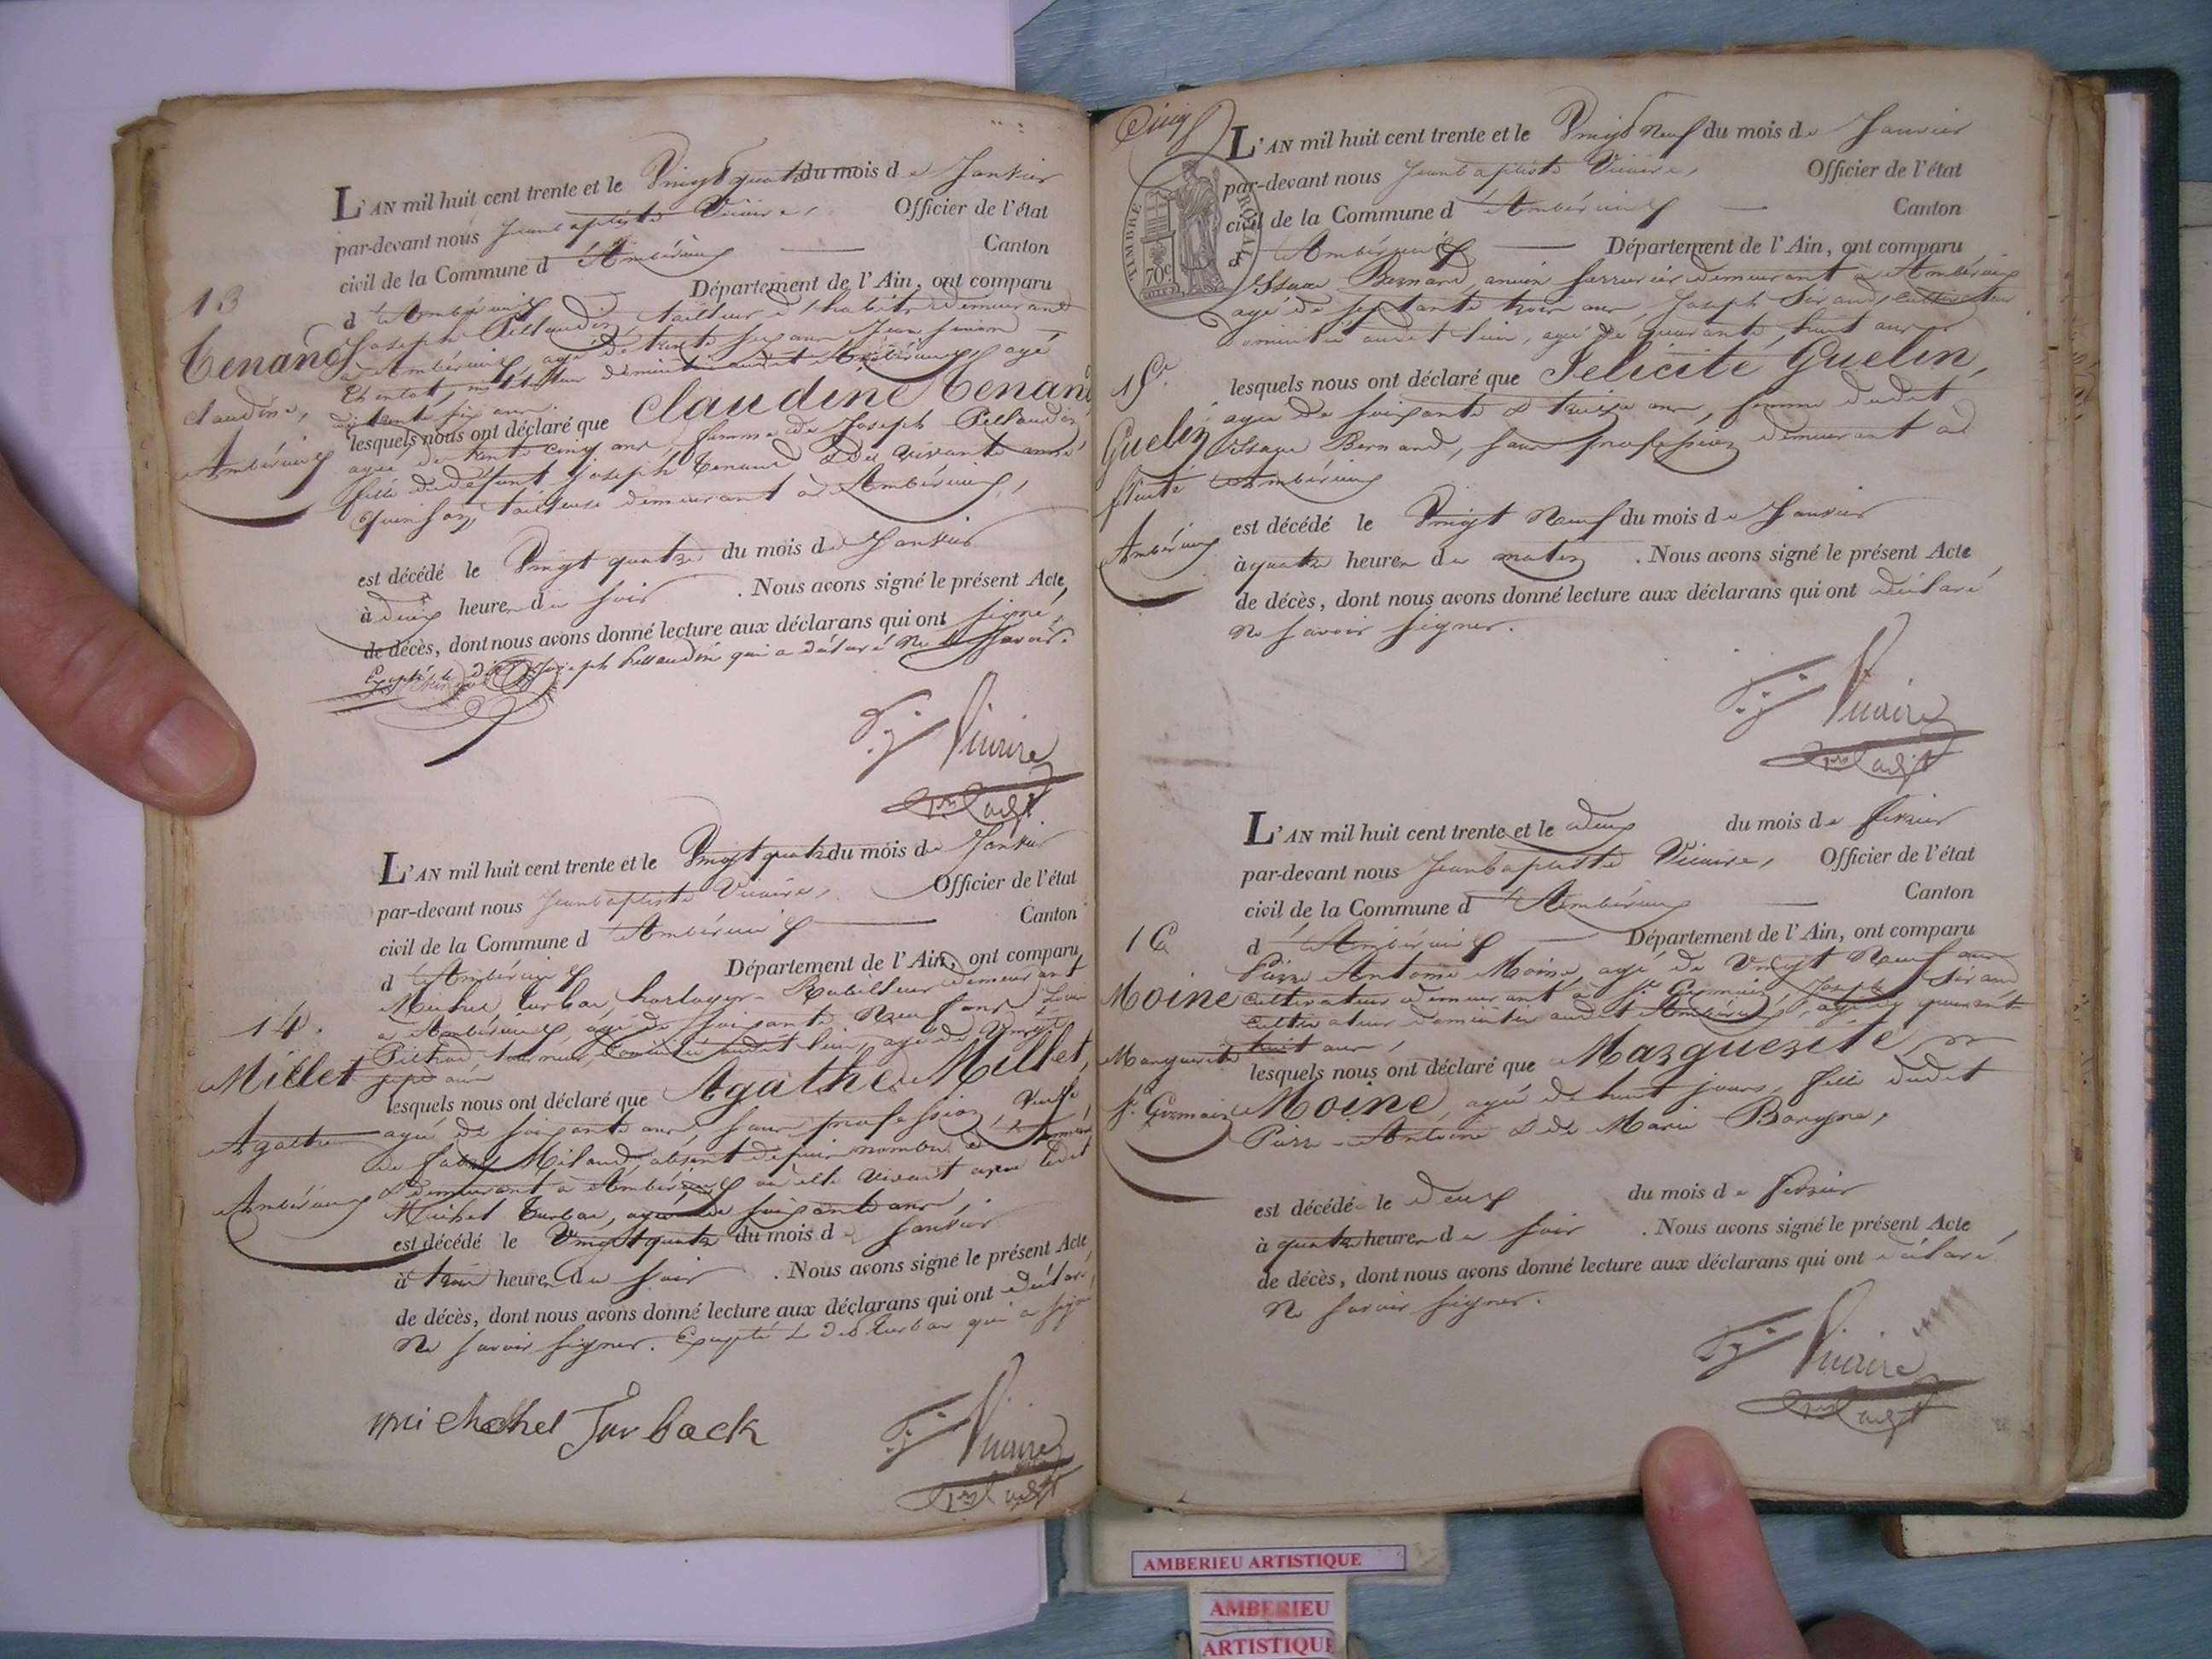 L'AN mil huit cent trente et le Vingt quatre du mois de Janvier
par-devant nous Jean baptiste Vicaire, Officier de l'état
civil de la Commune d'Ambérieux Canton
d'Ambérieux Département de l'Ain, ont comparu
Joseph Pellaudin, tailleur d'habits demeurant
à Ambérieux, agé de trente six ans, Jean
domicilié audit Ambérieux, agé
de trente six ans.
13
Tenand
claudine,
Ambérieux
lesquels nous ont déclaré que Claudine Tenand
agée de trente cinq ans, femme de Joseph Pellaudin,
fille de défunt Joseph Tenand & de vivante
tailleuse demeurant à Ambérieux,
est décédé le Vingt quatre du mois de Janvier
à deux heures du soir. Nous avons signé le présent Acte,
de décès, dont nous avons donné lecture aux déclarans qui ont signé,
Excepté le dit Joseph Pellaudin qui a déclaré ne savoir.
Vicaire
L'AN mil huit cent trente et le Vingt quatre du mois de Janvier
par-devant nous Jean baptiste Vicaire, Officier de l'état
civil de la Commune d'Ambérieux Canton
d'Ambérieux Département de l'Ain, ont comparu
Michel Turbac, horloger - Rabilleur demeurant
à Ambérieux, agé de soixante Neuf ans, Louis
domicilié audit lieu, agé de Vingt
sept ans
14.
Millet
Agathe
Ambérieux
lesquels nous ont déclaré que Agathe Millet,
agée de soixante ans, sans profession, veuve
de Milaud, absent depuis nombre d'années,
& demeurant à Ambérieux où elle vivait avec ledit
Michel Turbac, agée de soixante ans,
est décédé le Vingt quatre du mois de Janvier
à trois heures du soir. Nous avons signé le présent Acte
de décès, dont nous avons donné lecture aux déclarans qui ont déclaré
Ne savoir signer. Excepté le dit Turbac qui a signé
michel Turback
Vicaire
Cinq
TIMBRE ROYAL
70c
L'AN mil huit cent trente et le Vingt Neuf du mois de Janvier
par-devant nous Jean baptiste Vicaire, Officier de l'état
civil de la Commune d'Ambérieux Canton
d'Ambérieux Département de l'Ain, ont comparu
Isaac Bernard, ancien serrurier demeurant à Ambérieux
agé de septante trois ans, Joseph Sirand, cultivateur
domicilié audit lieu, agé de quarante huit ans
15.
Guelin
félicité
Ambérieux
lesquels nous ont déclaré que Félicité Guelin,
agée de soixante & treize ans, femme dudit
Isaac Bernard, sans profession demeurant à
Ambérieux
est décédé le Vingt Neuf du mois de Janvier
à quatre heures du matin. Nous avons signé le présent Acte
de décès, dont nous avons donné lecture aux déclarans qui ont déclaré
Ne savoir signer.
Vicaire
L'AN mil huit cent trente et le deux du mois de février
par-devant nous Jean baptiste Vicaire, Officier de l'état
civil de la Commune d'Ambérieux Canton
d'Ambérieux Département de l'Ain, ont comparu
Pierre Antoine Moine, agé de Vingt Neuf ans
cultivateur demeurant à St Germain, Joseph Sirand
cultivateur domicilié audit Ambérieux, agé de quarante
huit ans,
16
Moine
Marguerite
St Germain
lesquels nous ont déclaré que Marguerite
Moine, agée de huit jours, fille dudit
Pierre - Antoine & de Marie
est décédé le deux du mois de février
à quatre heures du soir. Nous avons signé le présent Acte
de décès, dont nous avons donné lecture aux déclarans qui ont déclaré
Ne savoir signer.
Vicaire
AMBERIEU ARTISTIQUE
AMBERIEU
ARTISTIQUE